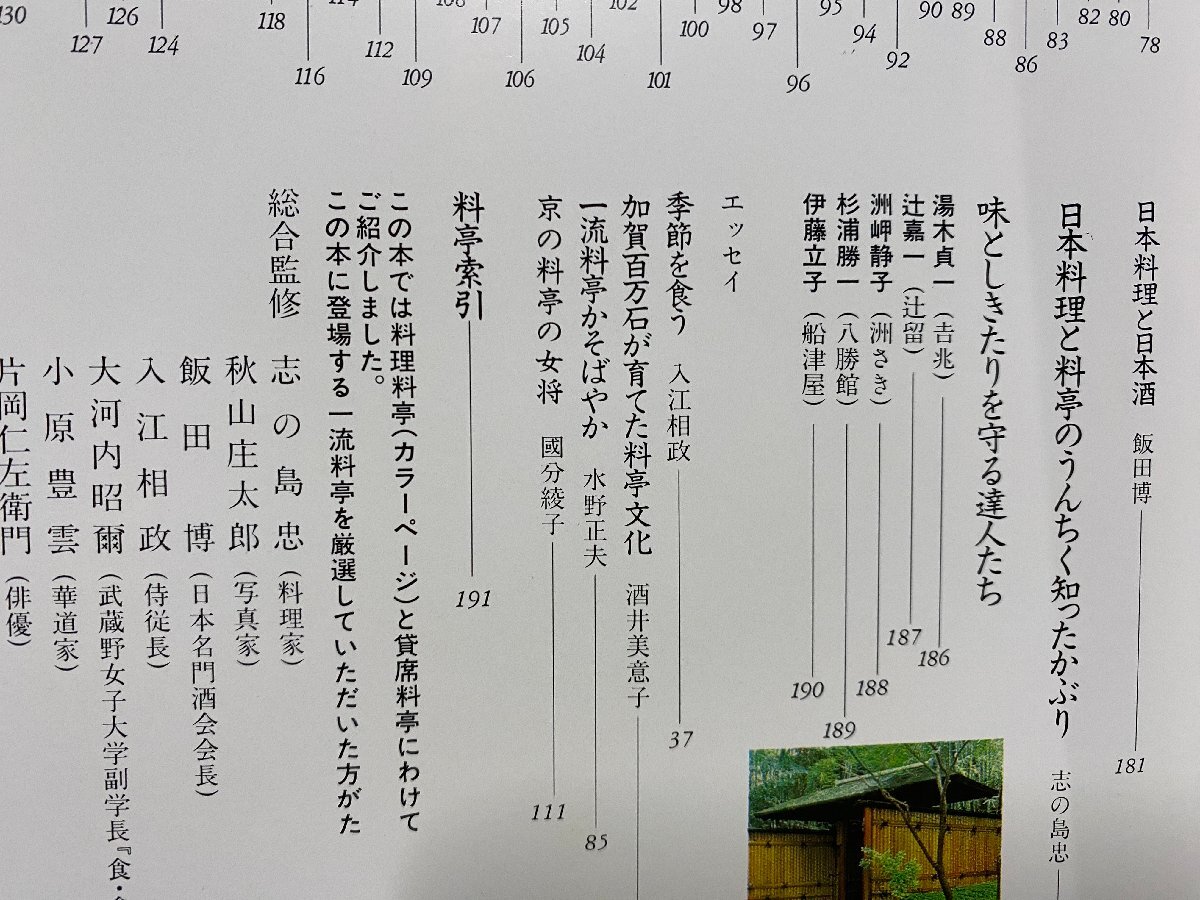 78
80
82
83
86
88
89
90
92
94
95
96
97
98
100
101
102
104
105
106
107
109
112
116
118
124
126
127
130
日本料理と日本酒 飯田博 181
日本料理と料亭のうんちく知ったかぶり 志の島忠
味としきたりを守る達人たち
湯木貞一(吉兆) 186
辻嘉一(辻留) 187
洲岬静子(洲さき) 188
杉浦勝一(八勝館) 189
伊藤立子(船津屋) 190
エッセイ
季節を食う 入江相政 37
加賀百万石が育てた料亭文化 酒井美意子
一流料亭かそばやか 水野正夫 85
京の料亭の女将 國分綾子 111
料亭索引 191
この本では料理料亭(カラーページ)と貸席料亭にわけて
ご紹介しました。
この本に登場する一流料亭を厳選していただいた方がた
総合監修 志の島忠(料理家)
秋山庄太郎(写真家)
飯田博(日本名門酒会会長)
入江相政(侍従長)
大河内昭爾(武蔵野女子大学副学長『食・
小原豊雲(華道家)
片岡仁左衛門(俳優)